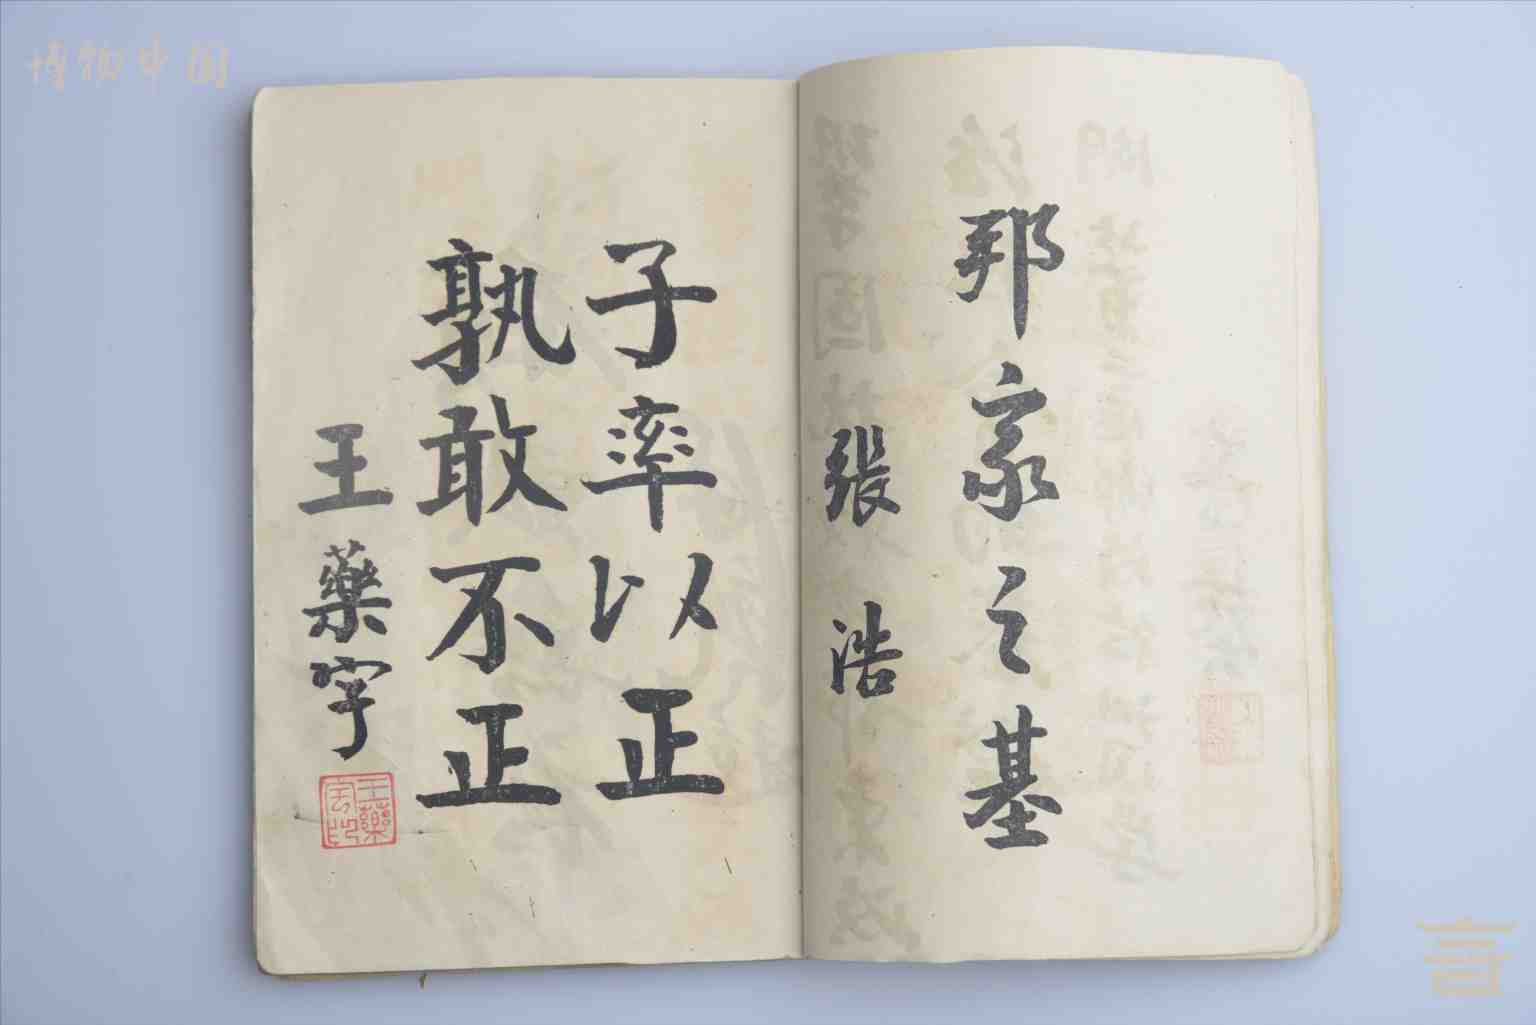 邦家之基
张浩
子率以正
孰敢不正
王藥宇
王藥宇印
博物中国
言